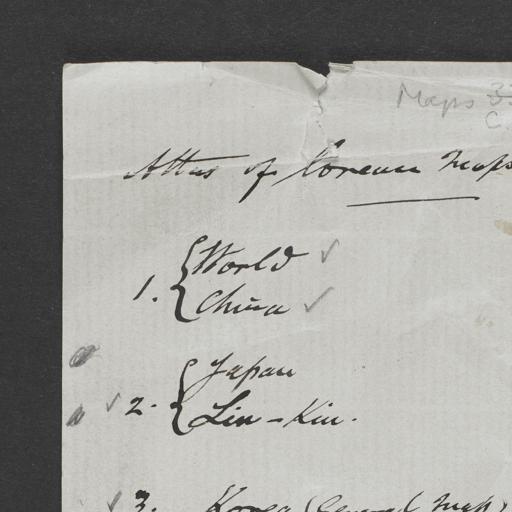 Maps 33
C.
Atlas of Corean Maps
1. { World ✓
China ✓
2. { Japan
Liu-Kiu.
3. Korea (General Map)